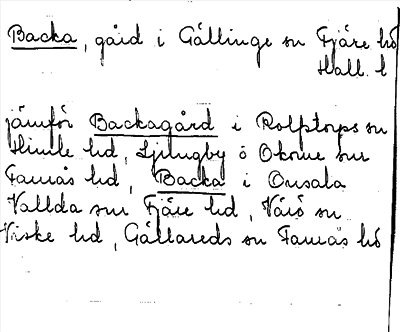 Backa, gård i Gällinge sn Fjäre hd
Hall. l
jämför Backagård i Rolfstorps sn
Himle hd, Ljungby o Okome snr
Faurås hd, Backa i Onsala
Vallda snr Fjäre hd, Värö sn
Viske hd, Gällareds sn Faurås hd